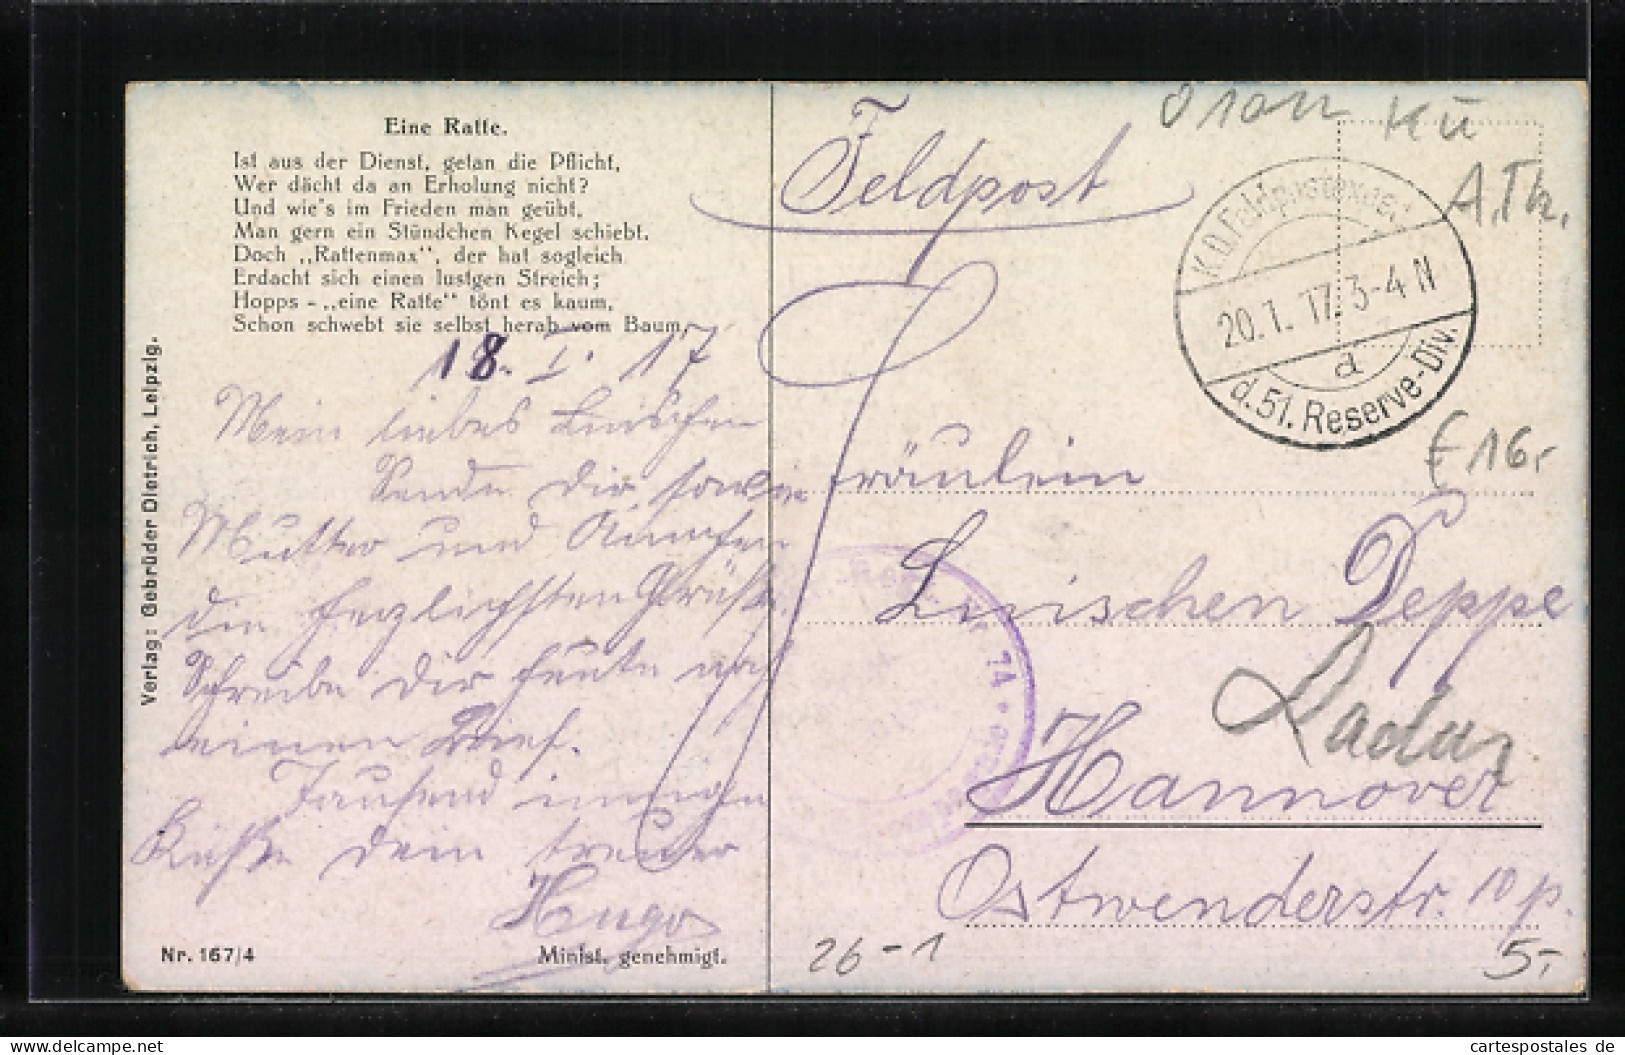 Eine Ratte.
Ist aus der Dienst, getan die Pflicht,
Wer dächt da an Erholung nicht?
Und wie's im Frieden man geübt,
Man gern ein Stündchen Kegel schiebt.
Doch „Rattenmax", der hat sogleich
Erdacht sich einen lustgen Streich;
Hopps - „eine Ratte" tönt es kaum,
Schon schwebt sie selbst herab vom Baum.
18. I. 17
Mein liebes Linischen
Sende dir sowie
Mutter und
die herzlichsten Grüße.
Schreibe dir heute noch
einen Brief.
Tausend innigen
Küsse dein treuer
Hugo
Verlag: Gebrüder Dietrich, Leipzig.
Nr. 167/4
Minist. genehmigt.
Feldpost
K.D. Feldpostexped.
20.1.17. 3-4 N
a
d. 51. Reserve-Div.
KÜ
A.Th.
€ 16,-
Fräulein
Linischen Deppe
Hannover
Ostwenderstr. 10 p.
Nr 74
26-1
5,-
cartespostales.de
cartespostales de